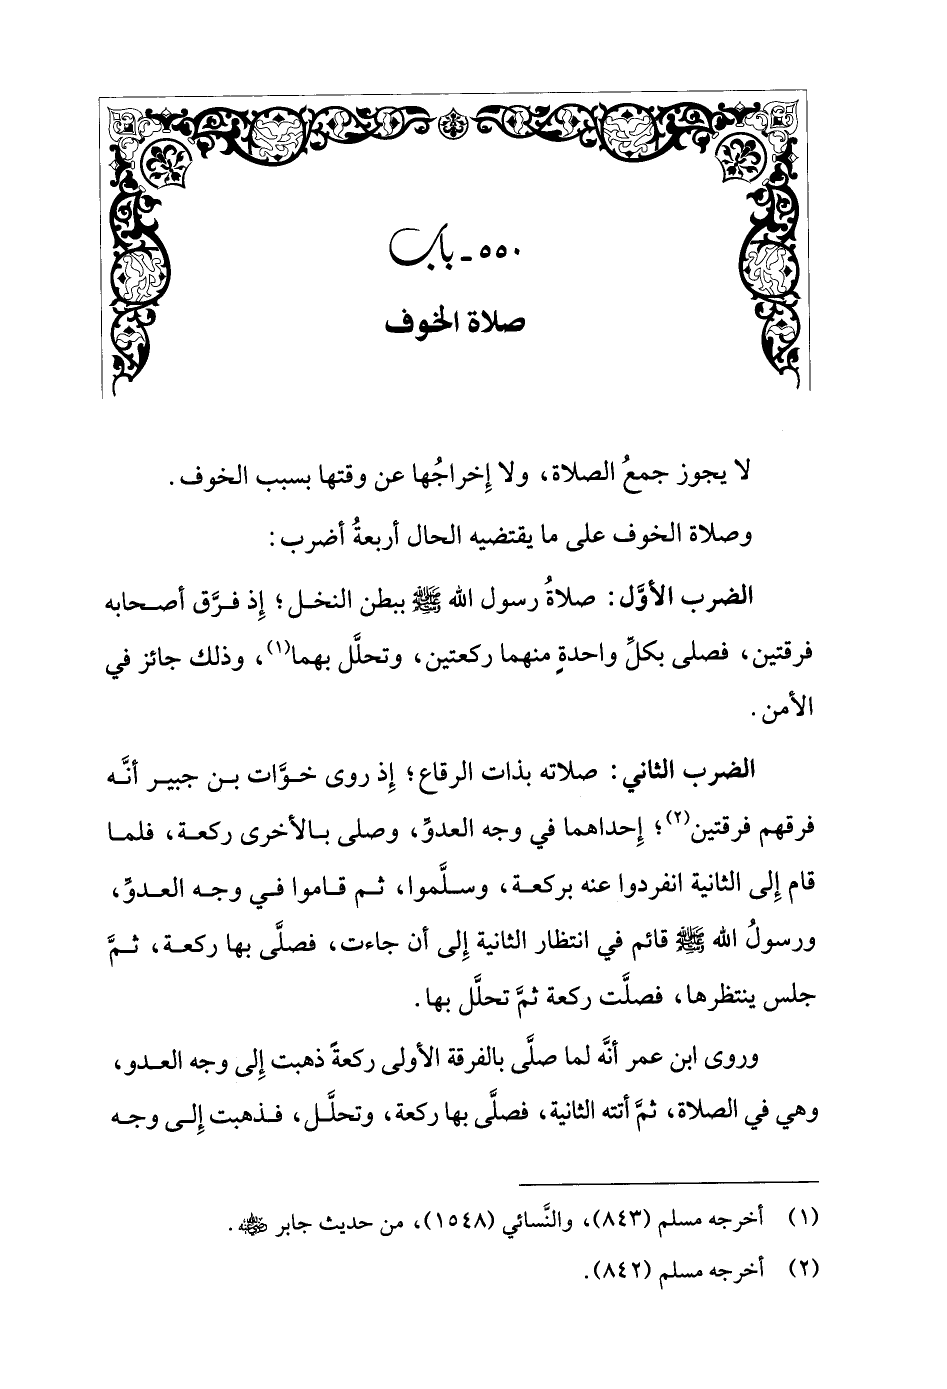 ٥٥٠ - باب
صلاة الخوف
لا يجوز جمعُ الصلاة، ولا إخراجُها عن وقتها بسبب الخوف.
وصلاة الخوف على ما يقتضيه الحال أربعةُ أضرب:
الضرب الأوَّل: صلاةُ رسول الله ﷺ ببطن النخل؛ إذ فرَّق أصحابه
فرقتين، فصلى بكلِّ واحدةٍ منهما ركعتين، وتحلَّل بهما(١)، وذلك جائز في
الأمن.
الضرب الثاني: صلاته بذات الرقاع؛ إذ روى خوَّات بن جبير أنَّه
فرقهم فرقتين(٢)؛ إحداهما في وجه العدوِّ، وصلى بالأخرى ركعة، فلما
قام إلى الثانية انفردوا عنه بركعة، وسلَّموا، ثم قاموا في وجه العدوِّ،
ورسولُ الله ﷺ قائم في انتظار الثانية إلى أن جاءت، فصلَّى بها ركعة، ثمَّ
جلس ينتظرها، فصلَّت ركعة ثمَّ تحلَّل بها.
وروى ابن عمر أنَّه لما صلَّى بالفرقة الأولى ركعةً ذهبت إلى وجه العدو،
وهي في الصلاة، ثمَّ أتته الثانية، فصلَّى بها ركعة، وتحلَّل، فذهبت إلى وجه
(١) أخرجه مسلم (٨٤٣)، والنَّسائي (١٥٤٨)، من حديث جابر رضي الله عنه.
(٢) أخرجه مسلم (٨٤٢).